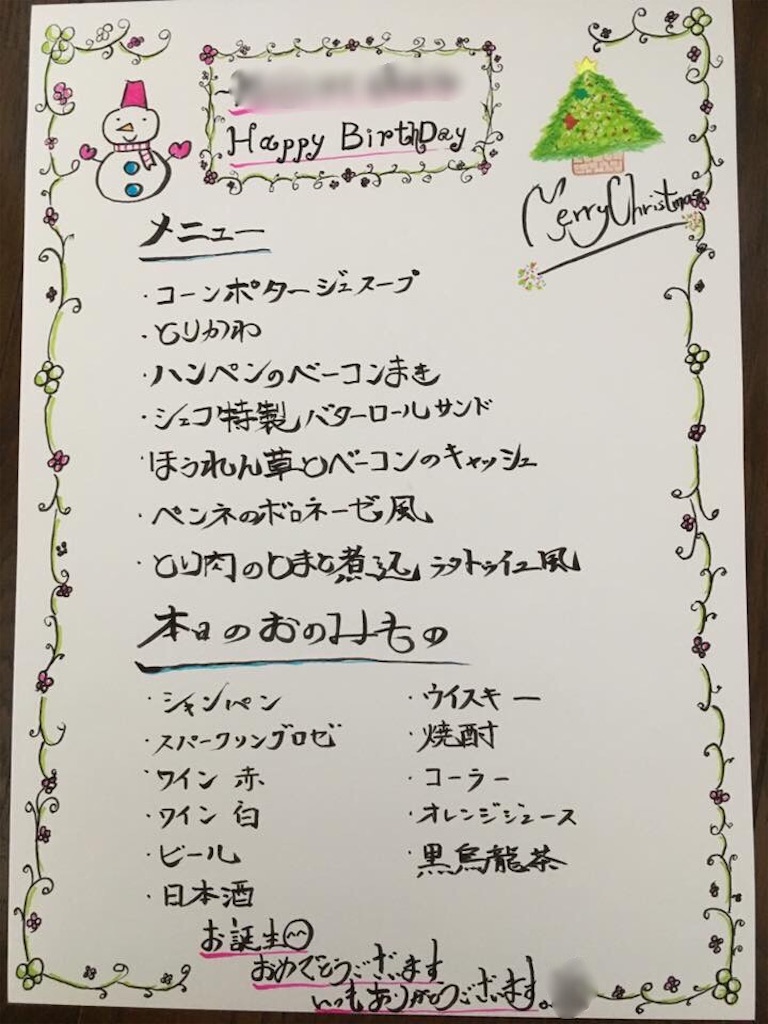 Happy BirthDay
Merry Christmas
メニュー
・コーンポタージュスープ
・とりかわ
・ハンペンのベーコンまき
・シェフ特製 バターロールサンド
・ほうれん草とベーコンのキャッシュ
・ペンネのボロネーゼ風
・とり肉のとまと煮込 ラタトゥイユ風
本日のおのみもの
・シャンパン
・スパークリングロゼ
・ワイン 赤
・ワイン 白
・ビール
・日本酒
・ウイスキー
・焼酎
・コーラー
・オレンジジュース
・黒烏龍茶
お誕生日
おめでとうございます
いつもありがとうございます。